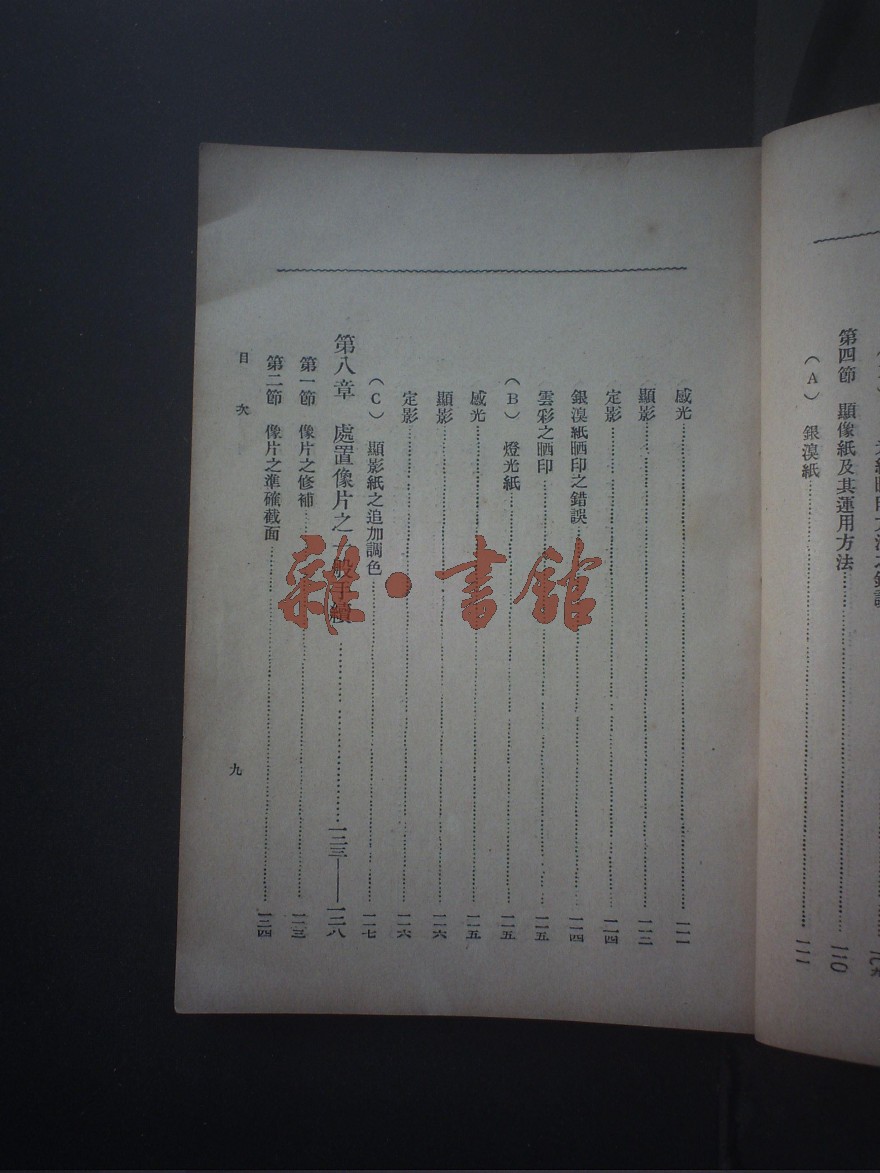 第四節　顯像紙及其運用方法……一一〇
（A）銀溴紙……一一一
感光……一一一
顯影……一一二
定影……一一四
銀溴紙晒印之錯誤……一一四
雲彩之晒印……一一五
（B）燈光紙……一一五
感光……一一五
顯影……一一六
定影……一一六
（C）顯影紙之追加調色……一一七
第八章　處置像片之一般手續……一二三——一三八
第一節　像片之修補……一二三
第二節　像片之準確截面……一二四
目次
九
雜·書館